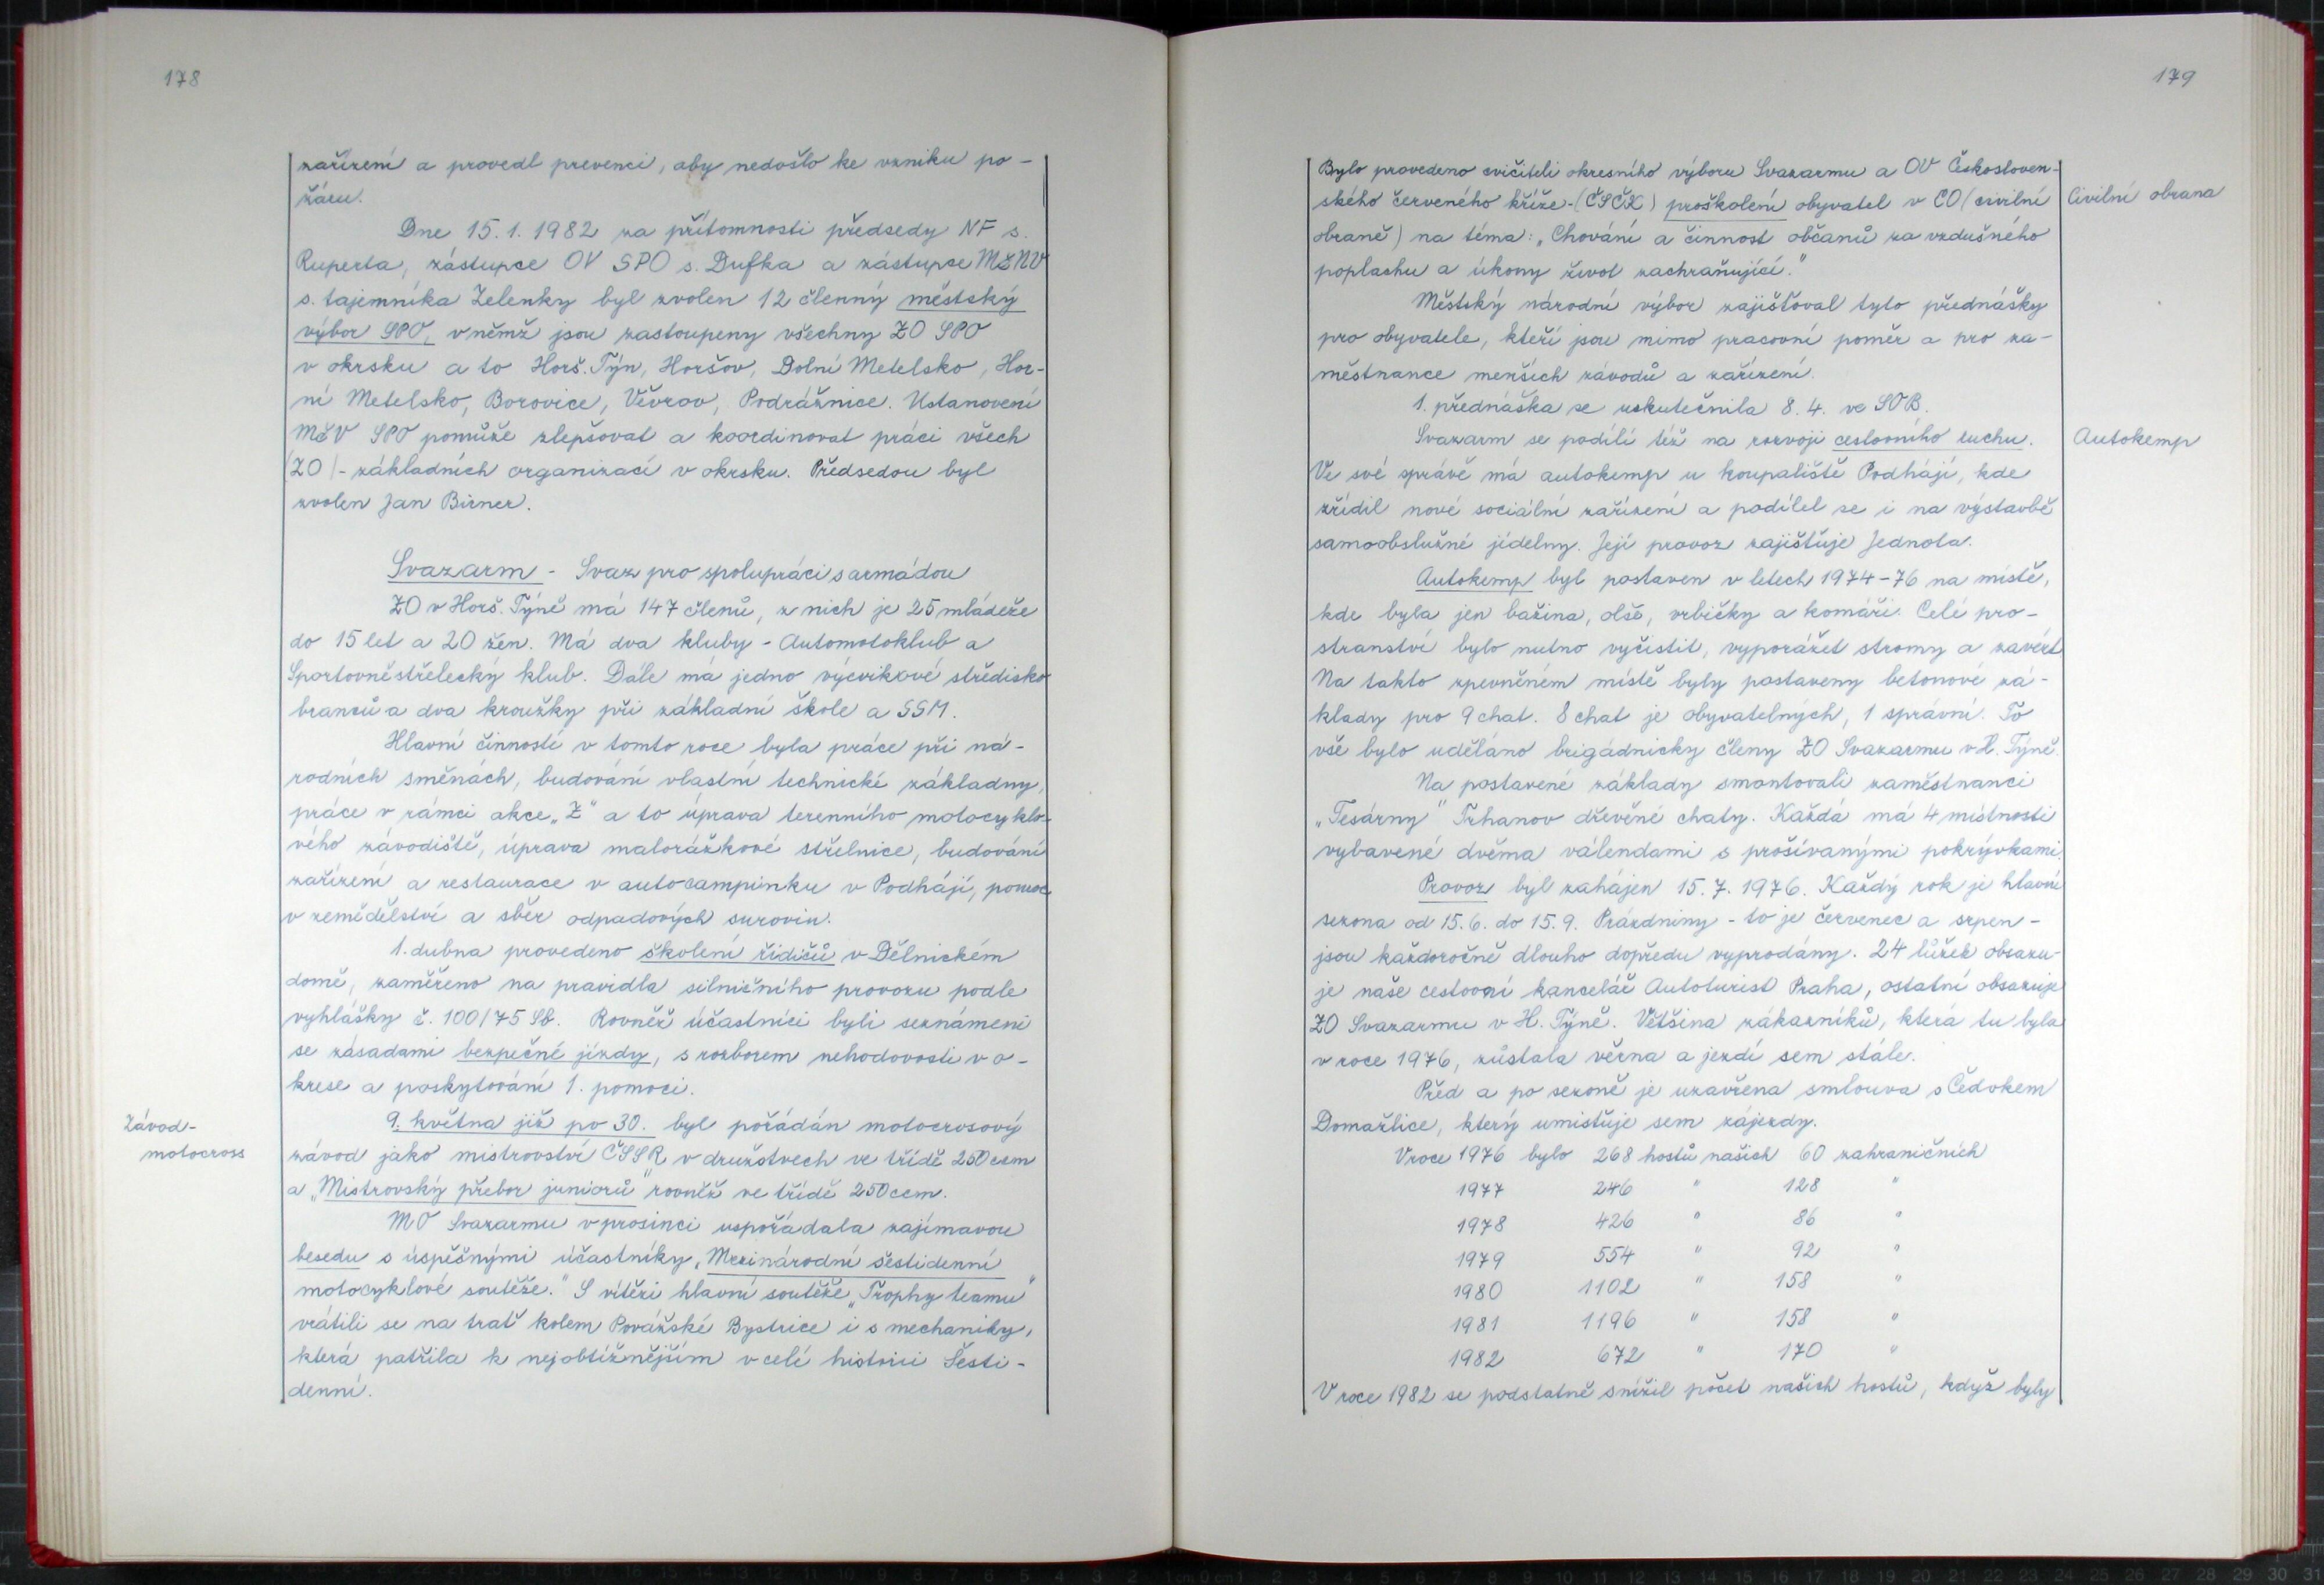 178
zařízení a provedl prevenci, aby nedošlo ke vzniku po-
žáru.
Dne 15. 1. 1982 za přítomnosti předsedy NF s.
Ruperta, zástupce OV SPO s. Dufka a zástupce MěNV
s. tajemníka Zelenky byl zvolen 12 členný městský
výbor SPO, v němž jsou zastoupeny všechny ZO SPO
v okrsku a to Horš. Týn, Horšov, Dolní Metelsko, Hor-
ní Metelsko, Borovice, Věvrov, Podrážnice. Ustanovení
MěV SPO pomůže zlepšovat a koordinovat práci všech
(ZO) - základních organizací v okrsku. Předsedou byl
zvolen Jan Birner.
Svazarm - Svaz pro spolupráci s armádou
ZO v Horš. Týně má 147 členů, z nich je 25 mládeže
do 15 let a 20 žen. Má dva kluby - Automotoklub a
Sportovněstřelecký klub. Dále má jedno výcvikové středisko
branců a dva kroužky při základní škole a SSM.
Hlavní činností v tomto roce byla práce při ná-
rodních směnách, budování vlastní technické základny,
práce v rámci akce „Z" a to úprava terenního motocyklo-
vého závodiště, úprava malorážkové střelnice, budování
zařízení a restaurace v autocampinku v Podhájí, pomoc
v zemědělství a sběr odpadových surovin.
1. dubna provedeno školení řidičů v Dělnickém
domě, zaměřeno na pravidla silničního provozu podle
vyhlášky č. 100/75 Sb. Rovněž účastníci byli seznámeni
se zásadami bezpečné jízdy, s rozborem nehodovosti v o-
krese a poskytování 1. pomoci.
Závod-
motocross
9. května již po 30. byl pořádán motocrosový
závod jako mistrovství ČSSR v družstvech ve třídě 250 ccm
a „Mistrovský přebor juniorů" rovněž ve třídě 250 ccm.
MO Svazarmu v prosinci uspořádala zajímavou
besedu s úspěšnými účastníky „Mezinárodní šestidenní
motocyklové soutěže." S vítězi hlavní soutěže „Trophy teamu"
vrátili se na trať kolem Považské Bystrice i s mechaniky,
která patřila k nejobtížnějším v celé historii Šesti-
denní.
179
Bylo provedeno cvičiteli okresního výboru Svazarmu a OV Českosloven-
ského červeného kříže - (ČSČK) proškolení obyvatel v CO (civilní
Civilní obrana
obraně) na téma: „Chování a činnost občanů za vzdušného
poplachu a úkony život zachraňující."
Městský národní výbor zajišťoval tyto přednášky
pro obyvatele, kteří jsou mimo pracovní poměr a pro za-
městnance menších závodů a zařízení.
1. přednáška se uskutečnila 8. 4. ve SOB.
Svazarm se podílí též na rozvoji cestovního ruchu.
Autokemp
Ve své správě má autokemp u koupaliště Podhájí, kde
zřídil nové sociální zařízení a podílel se i na výstavbě
samoobslužné jídelny. Její provoz zajišťuje Jednota.
Autokemp byl postaven v letech 1974-76 na místě,
kde byla jen bažina, olše, vrbičky a komáři. Celé pro-
stranství bylo nutno vyčistit, vyporážet stromy a zavézt
Na takto zpevněném místě byly postaveny betonové zá-
klady pro 9 chat. 8 chat je obyvatelných, 1 správní. To
vše bylo uděláno brigádnicky členy ZO Svazarmu v H. Týně.
Na postavené základy smontovali zaměstnanci
„Tesárny" Trhanov dřevěné chaty. Každá má 4 místnosti
vybavené dvěma válendami s prošívanými pokrývkami.
Provoz byl zahájen 15. 7. 1976. Každý rok je hlavní
sezona od 15. 6. do 15. 9. Prázdniny - to je červenec a srpen -
jsou každoročně dlouho dopředu vyprodány. 24 lůžek obsazu-
je naše cestovní kancelář Autoturist Praha, ostatní obsazuje
ZO Svazarmu v H. Týně. Většina zákazníků, která tu byla
v roce 1976, zůstala věrna a jezdí sem stále.
Před a po sezoně je uzavřena smlouva s Čedokem
Domažlice, který umisťuje sem zájezdy.
V roce 1976 bylo 268 hostů našich 60 zahraničních
1977 246 " 128 "
1978 426 " 86 "
1979 554 " 92 "
1980 1102 " 158 "
1981 1196 " 158 "
1982 672 " 170 "
V roce 1982 se podstatně snížil počet našich hostů, když byly